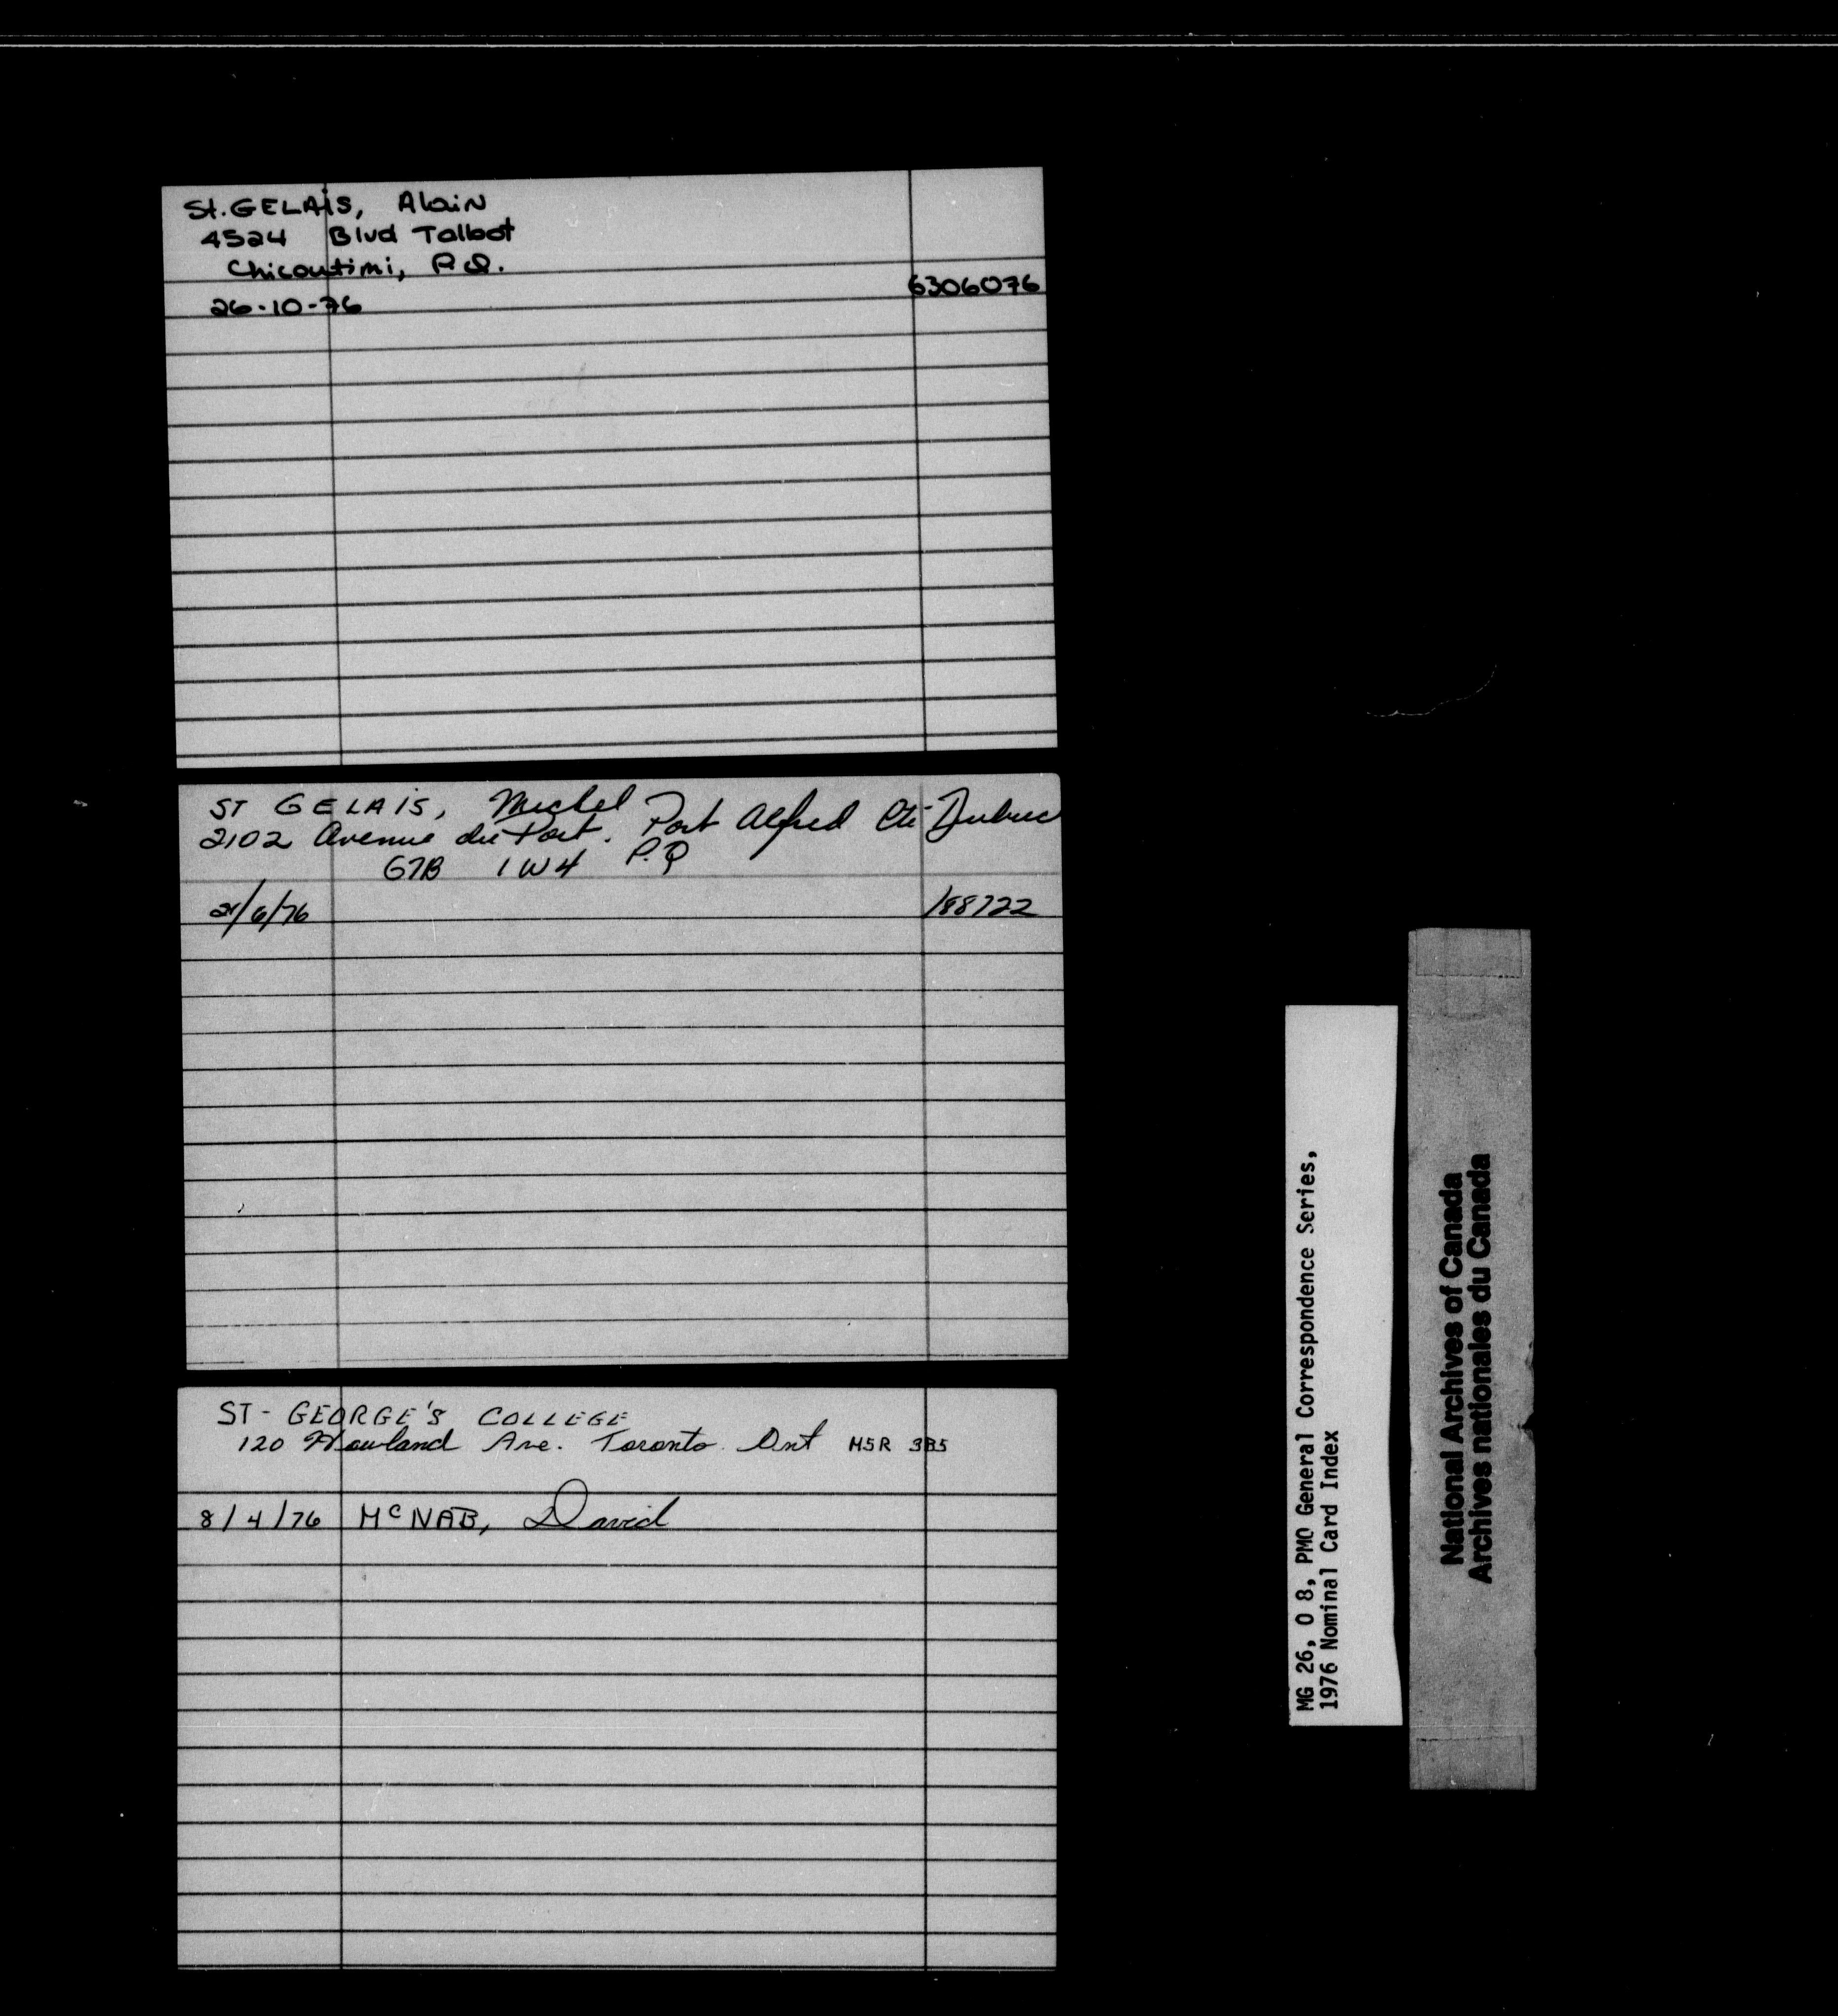 St. GELAIS, Alain
4524 Blvd Talbot
Chicoutimi, P.Q.
26-10-76 6306076
ST GELAIS, Michel
2102 Avenue du Port. Port Alfred Cté Dubuc
G7B 1W4 P.Q
21/6/76 188722
ST- GEORGE'S COLLEGE
120 Howland Ave. Toronto Ont M5R 3B5
8/4/76 McNAB, David
MG 26, O 8, PMO General Correspondence Series,
1976 Nominal Card Index
National Archives of Canada
Archives nationales du Canada